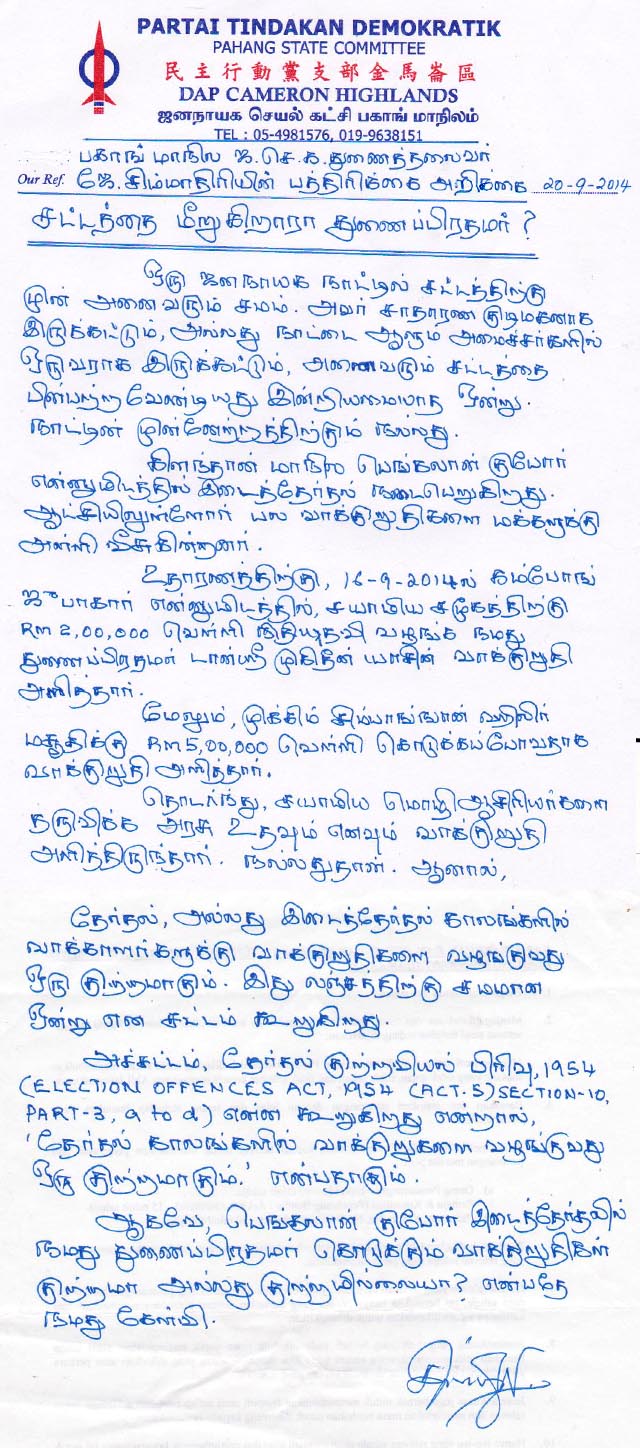 PARTAI TINDAKAN DEMOKRATIK
PAHANG STATE COMMITTEE
民主行動黨支部金馬崙區
DAP CAMERON HIGHLANDS
ஜனநாயக செயல் கட்சி பகாங் மாநிலம்
TEL : 05-4981576, 019-9638151
பகாங் மாநில ஜ.செ.க துணைத்தலைவர்
Our Ref. ஜே.சிம்மாதிரியின் பத்திரிக்கை அறிக்கை 20-9-2014
சட்டத்தை மீறுகிறாரா துணைப்பிரதமர் ?
ஒரு ஜனநாயக நாட்டில் சட்டத்திற்கு
முன் அனைவரும் சமம். அவர் சாதாரண குடிமகனாக
இருக்கட்டும், அல்லது நாட்டை ஆளும் அமைச்சர்களில்
ஒருவராக இருக்கட்டும், அனைவரும் சட்டதத்தை
பின்பற்ற வேண்டியது இன்றியமையாத ஒன்று.
நாட்டின் முன்னேற்றத்திற்கும் நல்லது.
கிளந்தான் மாநில பெங்கலான் குபோர்
என்னுமிடத்தில் இடைத்தேர்தல் நடைபெறுகிறது.
ஆட்சியிலுள்ளோர் பல வாக்குறுதிகளை மக்களுக்கு
அள்ளி வீசுகின்றனர்.
உதாரணத்திற்கு, 16-9-2014ல் கம்போங்
ஜுபாகார் என்னுமிடத்தில், சயாமிய சமூகத்திற்கு
RM 2,00,000 வெள்ளி நிதியுதவி வழங்க நமது
துணைப்பிரதமர் டான்ஸ்ரீ முகிதீன் யாசின் வாக்குறுதி
அளித்தார்.
மேலும், முக்கிம் சிம்பாங்நான் ஹிலிர்
மசூதிக்கு RM 5,00,000 வெள்ளி கொடுக்கப்போவதாக
வாக்குறுதி அளித்தார்.
தொடர்ந்து, சயாமிய மொழி ஆசிரியர்களை
தருவிக்க அரசு உதவும் எனவும் வாக்குறுதி
அளித்திருந்தார். நல்லதுதான். ஆனால்,
தேர்தல், அல்லது இடைத்தேர்தல் காலங்களில்
வாக்காளர்களுக்கு வாக்குறுதிகளை வழங்குவது
ஒரு குற்றமாகும். இது லஞ்சத்திற்கு சமமான
ஒன்று என சட்டம் கூறுகிறது.
அச்சட்டம், தேர்தல் குற்றவியல் பிரிவு, 1954
(ELECTION OFFENCES ACT, 1954 (ACT.5) SECTION-10,
PART-3, a to d) என்ன கூறுகிறது என்றால்,
'தேர்தல் காலங்களில் வாக்குறுகளை வழங்குவது
ஒரு குற்றமாகும்.' என்பதாகும்.
ஆகவே, பெங்கலான் குபோர் இடைத்தேர்தலில்
நமது துணைப்பிரதமர் கொடுக்கும் வாக்குறுதிகள்
குற்றமா அல்லது குற்றமில்லையா? என்பதே
நமது கேள்வி.